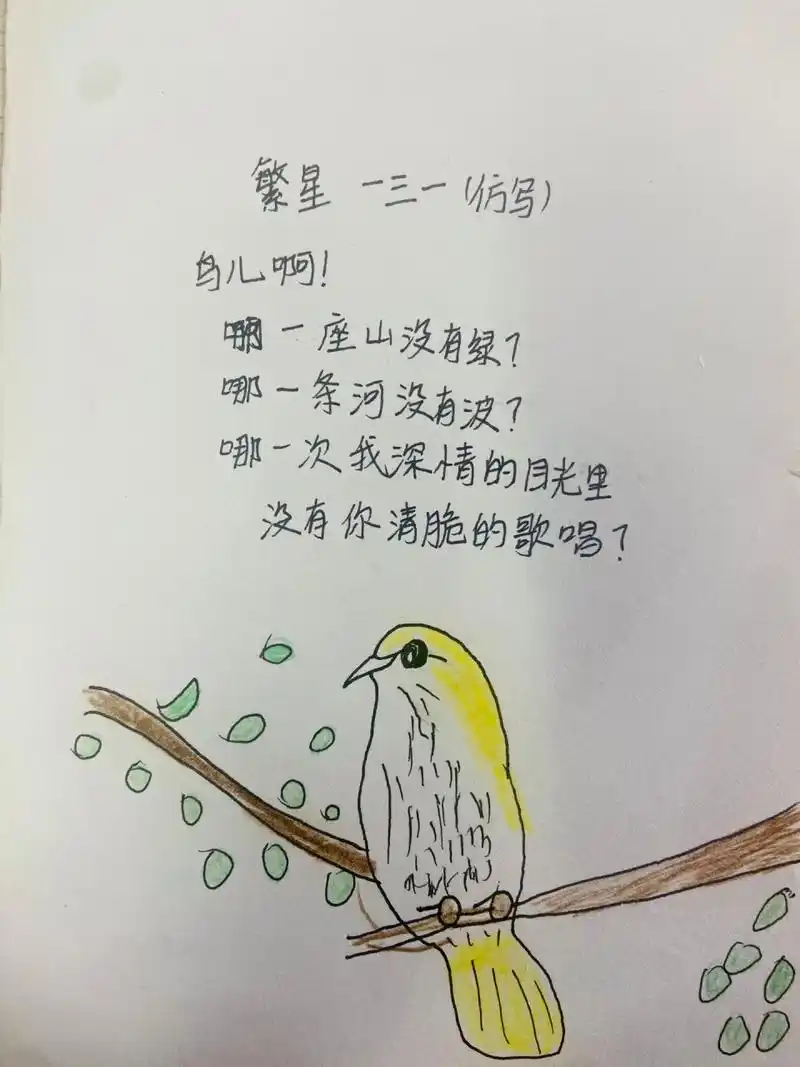 繁星 一三一(仿写)
鸟儿啊!
哪一座山没有绿?
哪一条河没有波?
哪一次我深情的目光里
没有你清脆的歌唱?